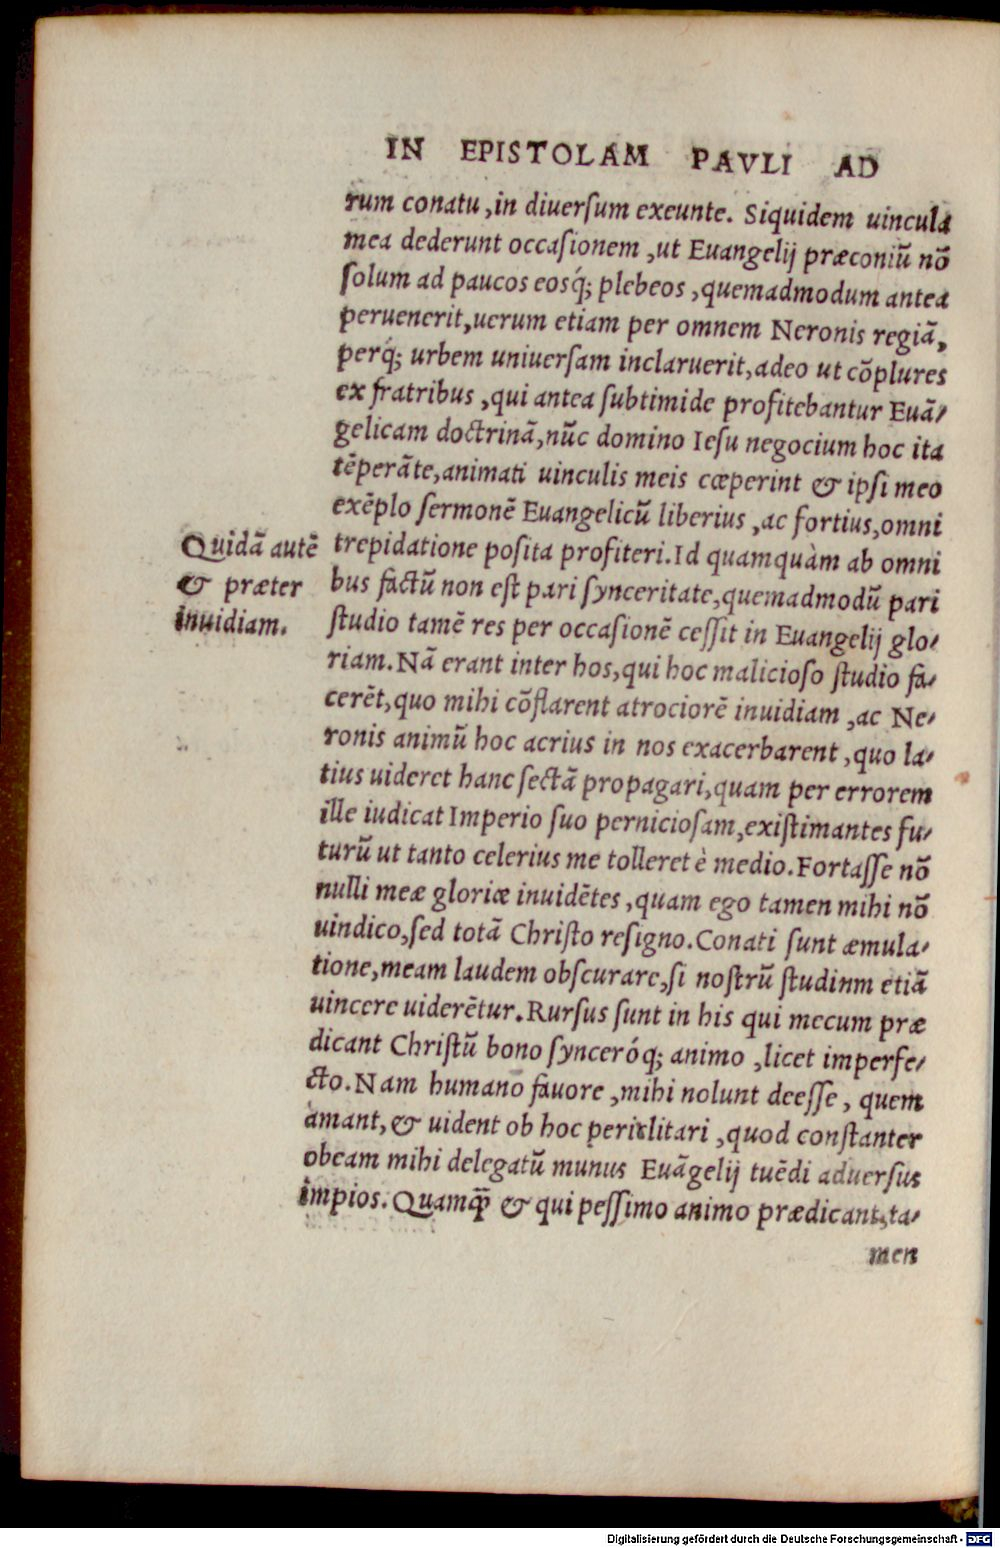 IN EPISTOLAM PAVLI AD
rum conatu, in diuerſum exeunte. Siquidem uincula
mea dederunt occaſionem, ut Euangelij præconiũ nõ
ſolum ad paucos eosq́; plebeos, quemadmodum antea
peruenerit, uerum etiam per omnem Neronis regiã,
perq́; urbem uniuerſam inclaruerit, adeo ut cõplures
ex fratribus, qui antea ſubtimide profitebantur Euã/
gelicam doctrinã, nũc domino Ieſu negocium hoc ita
tẽperãte, animati uinculis meis cœperint & ipſi meo
exẽplo ſermonẽ Euangelicũ liberius, ac fortius, omni
Quidã autẽ
& præter
inuidiam.
trepidatione poſita profiteri. Id quamquàm ab omni
bus factũ non eſt pari ſynceritate, quemadmodũ pari
ſtudio tamẽ res per occaſionẽ ceſſit in Euangelij glo/
riam. Nã erant inter hos, qui hoc malicioſo ſtudio fa/
cerẽt, quo mihi cõflarent atrociorẽ inuidiam, ac Ne/
ronis animũ hoc acrius in nos exacerbarent, quo la/
tius uideret hanc ſectã propagari, quam per errorem
ille iudicat Imperio ſuo pernicioſam, exiſtimantes fu/
turũ ut tanto celerius me tolleret è medio. Fortaſſe nõ
nulli meæ gloriæ inuidẽtes, quam ego tamen mihi nõ
uindico, ſed totã Chriſto reſigno. Conati ſunt æmula/
tione, meam laudem obſcurare, ſi noſtrũ ſtudinm etiã
uincere uiderẽtur. Rurſus ſunt in his qui mecum præ
dicant Chriſtũ bono ſynceróq; animo, licet imperfe/
cto. Nam humano fauore, mihi nolunt deeſſe, quem
amant, & uident ob hoc periclitari, quod conſtanter
obeam mihi delegatũ munus Euãgelij tuẽdi aduerſus
impios. Quamq̃ & qui peſſimo animo prædicant, ta/
men
Digitalisierung gefördert durch die Deutsche Forschungsgemeinschaft - DFG